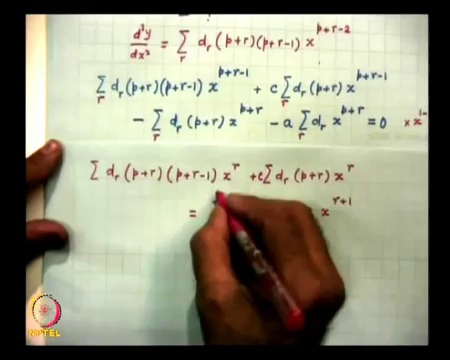 d²y/dx² = Σ_r d_r (p+r)(p+r-1) x^{p+r-2}
Σ_r d_r (p+r)(p+r-1) x^{p+r-1} + c Σ_r d_r (p+r) x^{p+r-1}
- Σ_r d_r (p+r) x^{p+r} - a Σ_r d_r x^{p+r} = 0 × x^{1-
Σ d_r (p+r)(p+r-1) x^r + c Σ d_r (p+r) x^r
= x^{r+1}
NPTEL